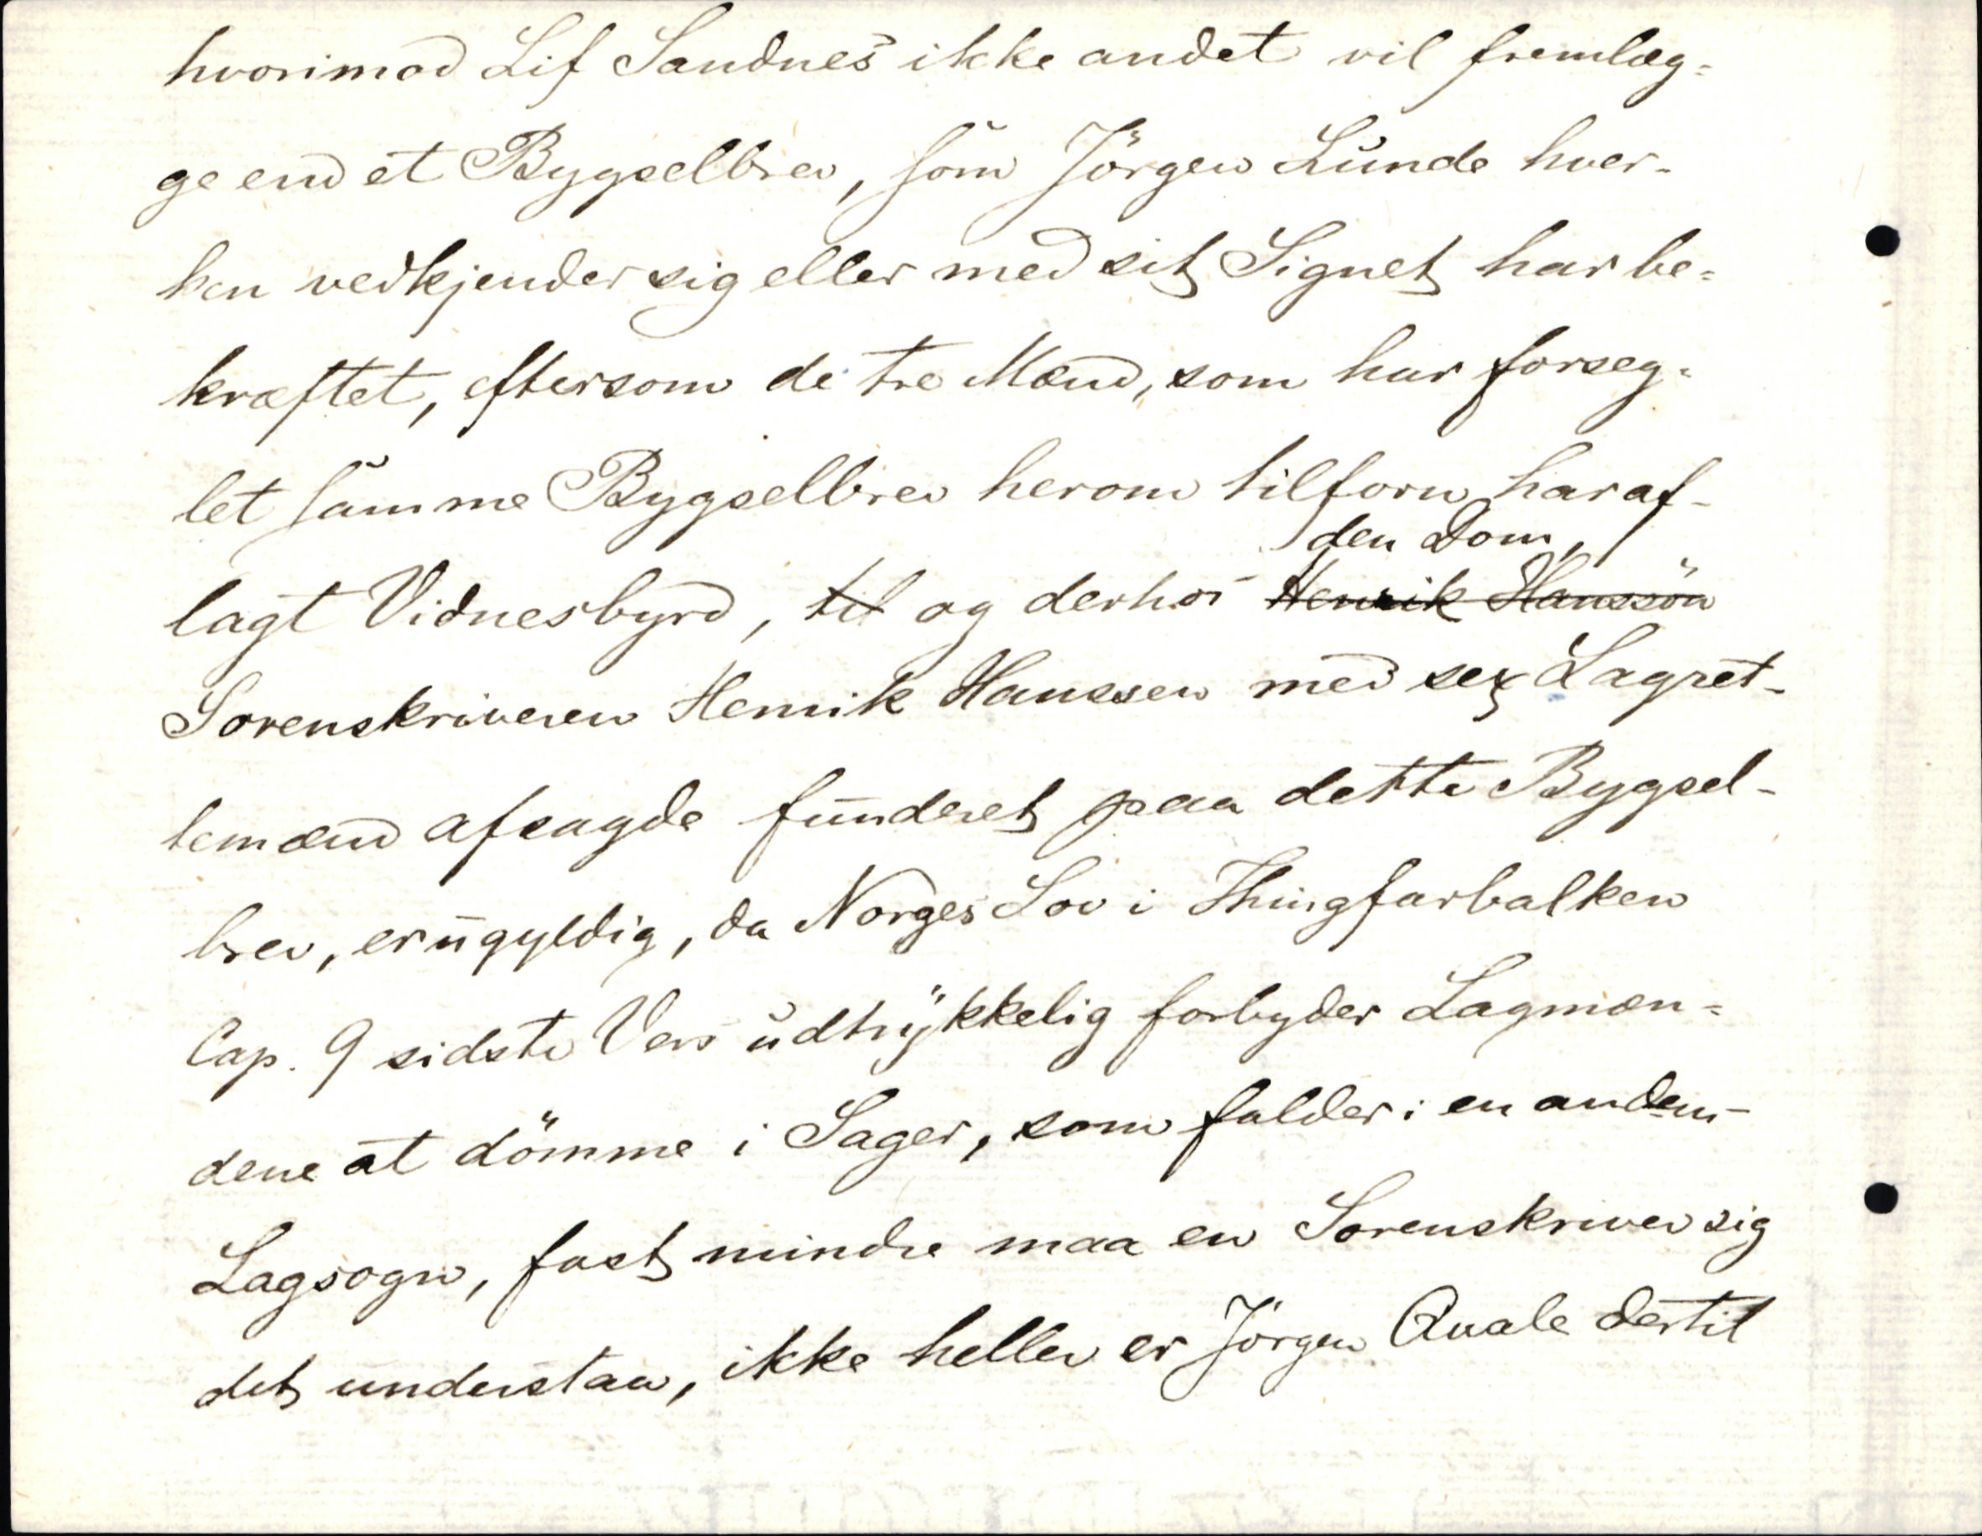 hvorimod Lif Sandnes ikke andet vil fremlæg-
ge end et Bygselbrev, som Jörgen Lunde hver-
ken vedkjender sig eller med sit Signet har be-
kræftet, eftersom de tre Mænd, som har forseg-
let samme Bygselbrev herom tilforn har af-
den Dom,
lagt Vidnesbyrd, til og derhos Henrik Hanssön
Sorenskriveren Henrik Hanssen med sex Lagret-
temænd afsagde funderet paa dette Bygsel-
brev, er ugyldig, da Norges Lov i Thingfarbalken
Cap. 9 sidste Vers udtrykkelig forbyder Lagmæn-
dene at dömme i Sager, som falder i en anden
Lagsogn, fast mindre maa en Sorenskriver sig
det understaa, ikke heller er Jörgen Quale dertil